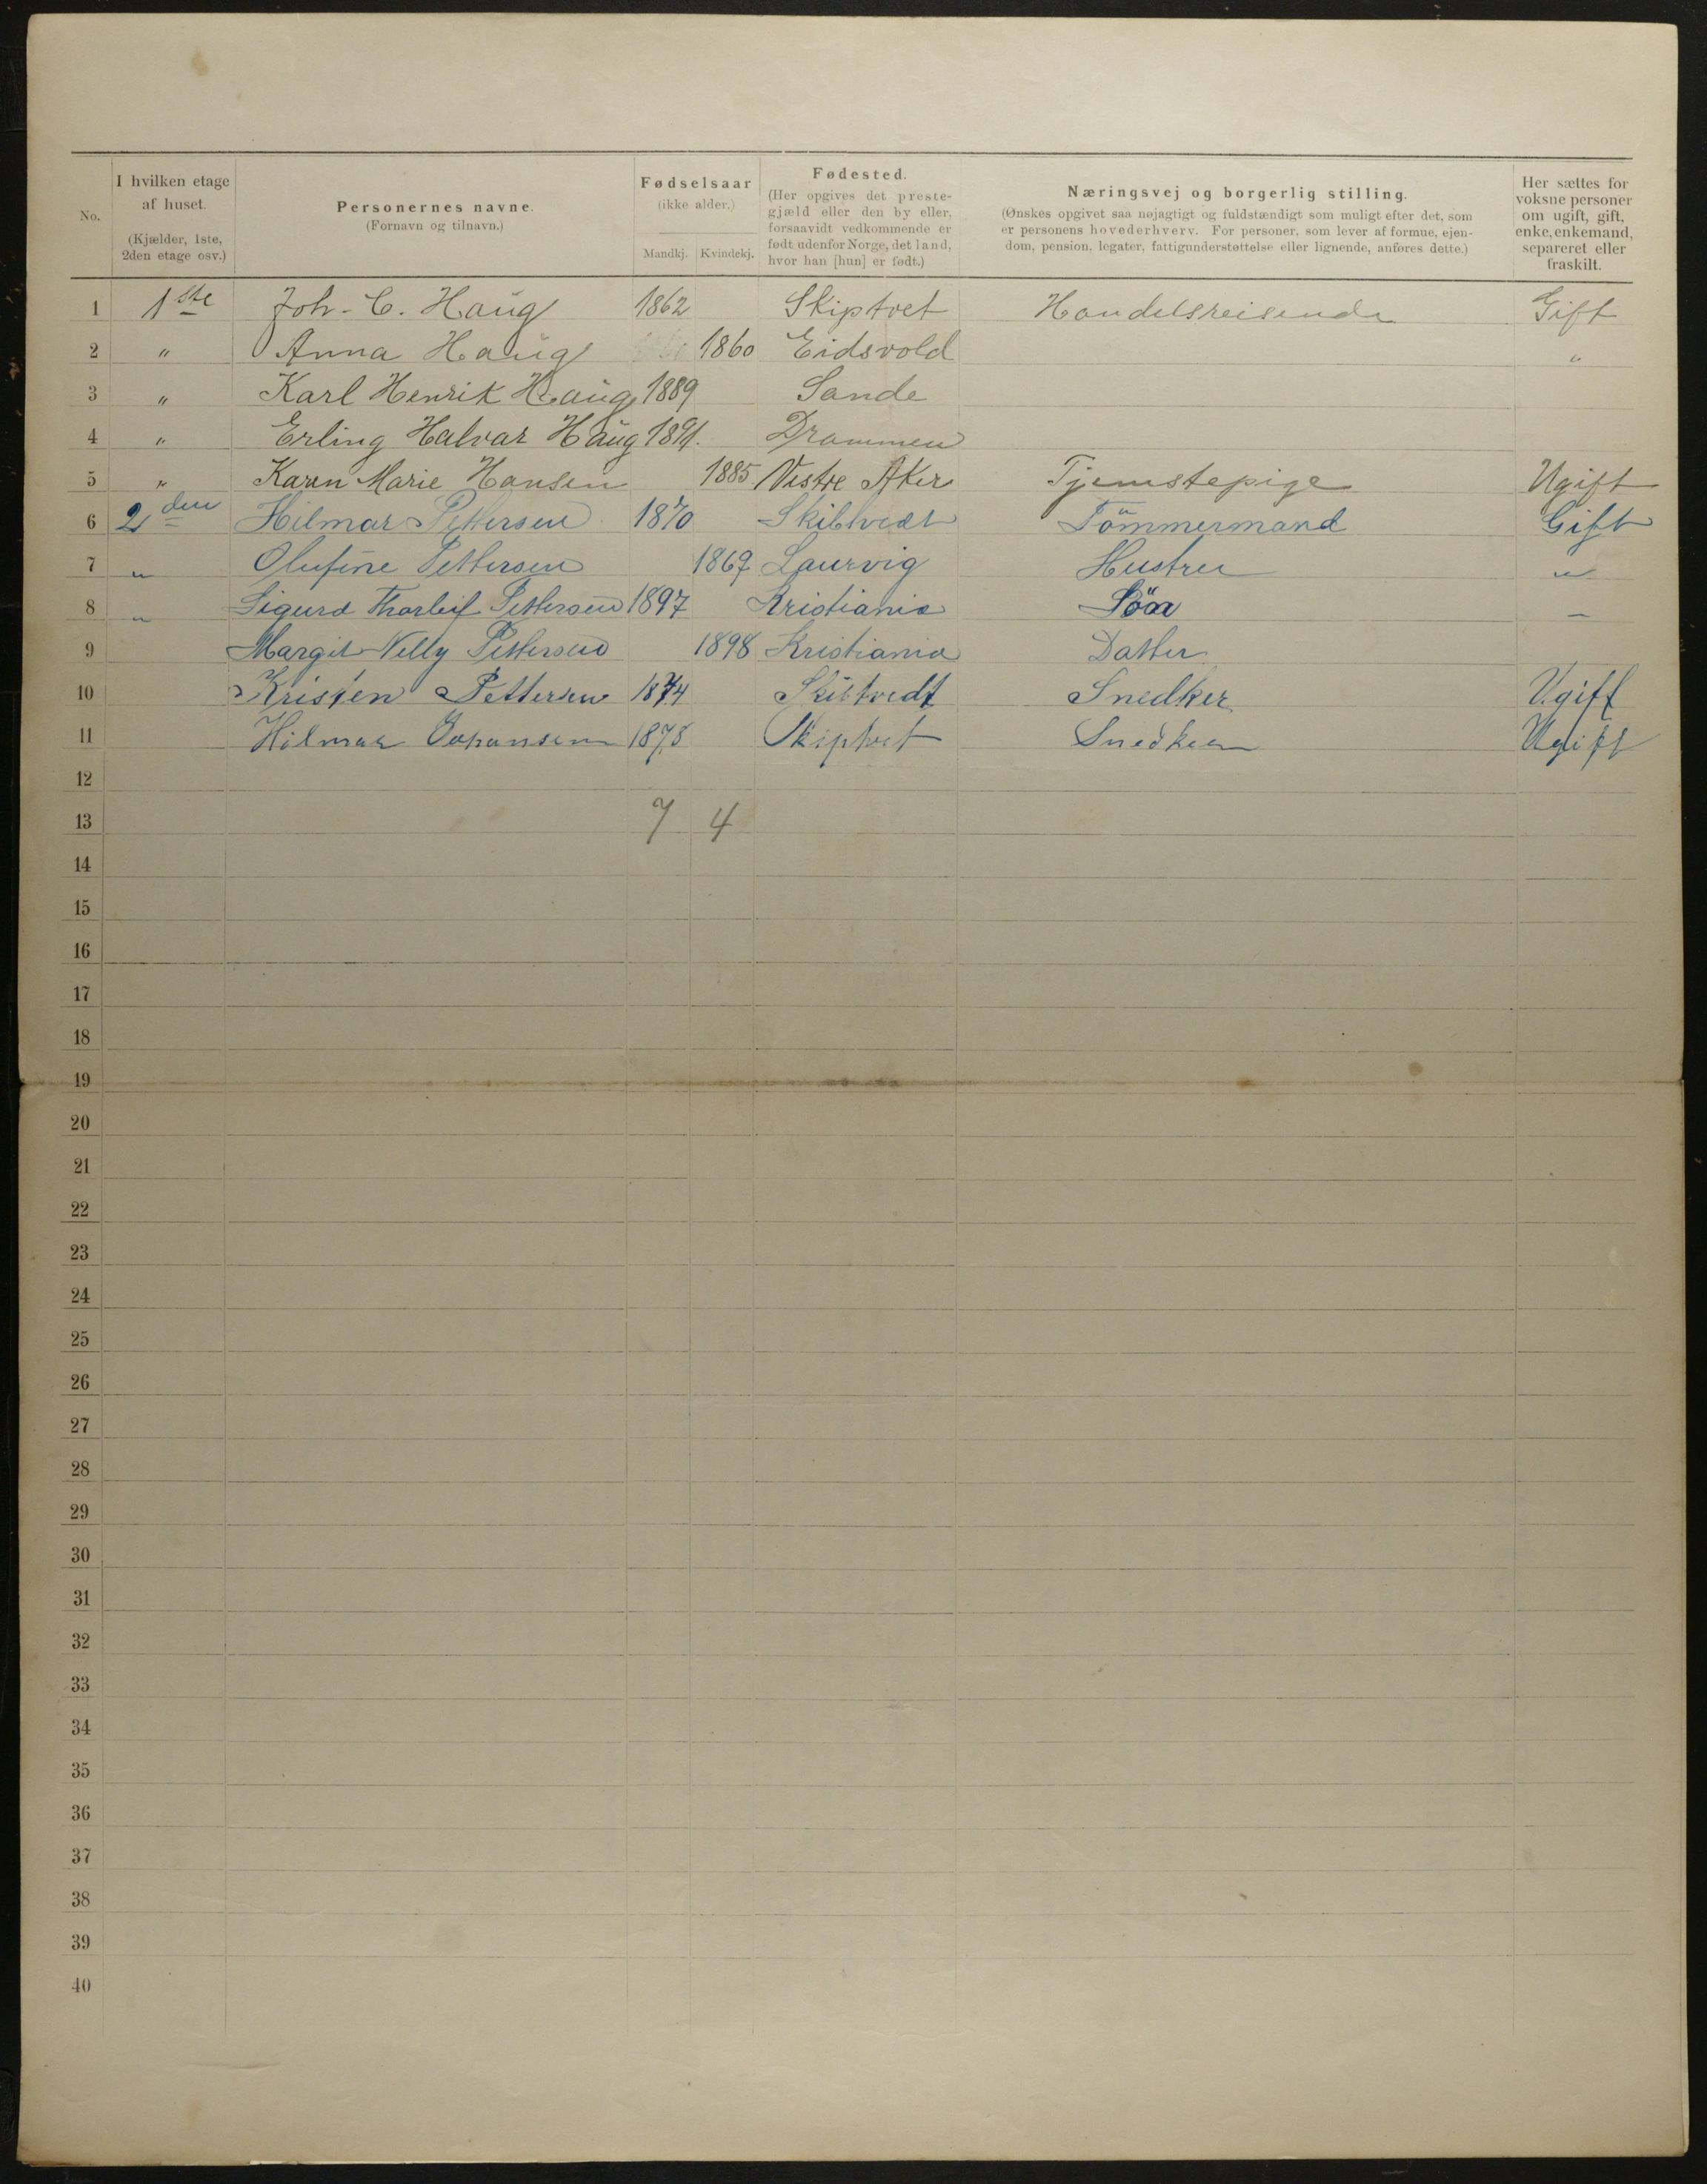 No. | I hvilken etage af huset. (Kjælder, 1ste, 2den etage osv.) | Personernes navne. (Fornavn og tilnavn.) | Fødselsaar (ikke alder.) Mandkj. | Kvindekj. | Fødested. (Her opgives det prestegjæld eller den by eller, forsaavidt vedkommende er født udenfor Norge, det land, hvor han [hun] er født.) | Næringsvej og borgerlig stilling. (Ønskes opgivet saa nøjagtigt og fuldstændigt som muligt efter det, som er personens hovederhverv. For personer, som lever af formue, ejendom, pension, legater, fattigunderstøttelse eller lignende, anføres dette.) | Her sættes for voksne personer om ugift, gift, enke, enkemand, separeret eller fraskilt.
1 | 1ste | Joh. C. Haug | 1862 | | Skiptvet | Handelsreisende | Gift
2 | " | Anna Haug | | 1860 | Eidsvold | | "
3 | " | Karl Henrik Haug | 1889 | | Sande
4 | " | Erling Halvar Haug | 1891. | | Drammen
5 | " | Karen Marie Hansen | | 1885 | Vestre Aker | Tjenestepige | Ugift
6 | 2den | Hilmar Pettersen | 1870 | | Skibtvedt | Tömmermand | Gift
7 | " | Olufine Pettersen | | 1867 | Laurvig | Hustru | "
8 | " | Sigurd Thorleif Pettersen | 1897 | | Kristiania | Sön | –
9 | | Margit Nelly Pettersen | | 1898 | Kristiania | Datter
10 | | Kristen Pettersen | 1874 | | Skibtvedt | Snedker | Ugift
11 | | Hilmar Johansen | 1878 | | Skiptvet | Snedker | Ugift
12
13 | | | 7 | 4
14
15
16
17
18
19
20
21
22
23
24
25
26
27
28
29
30
31
32
33
34
35
36
37
38
39
40